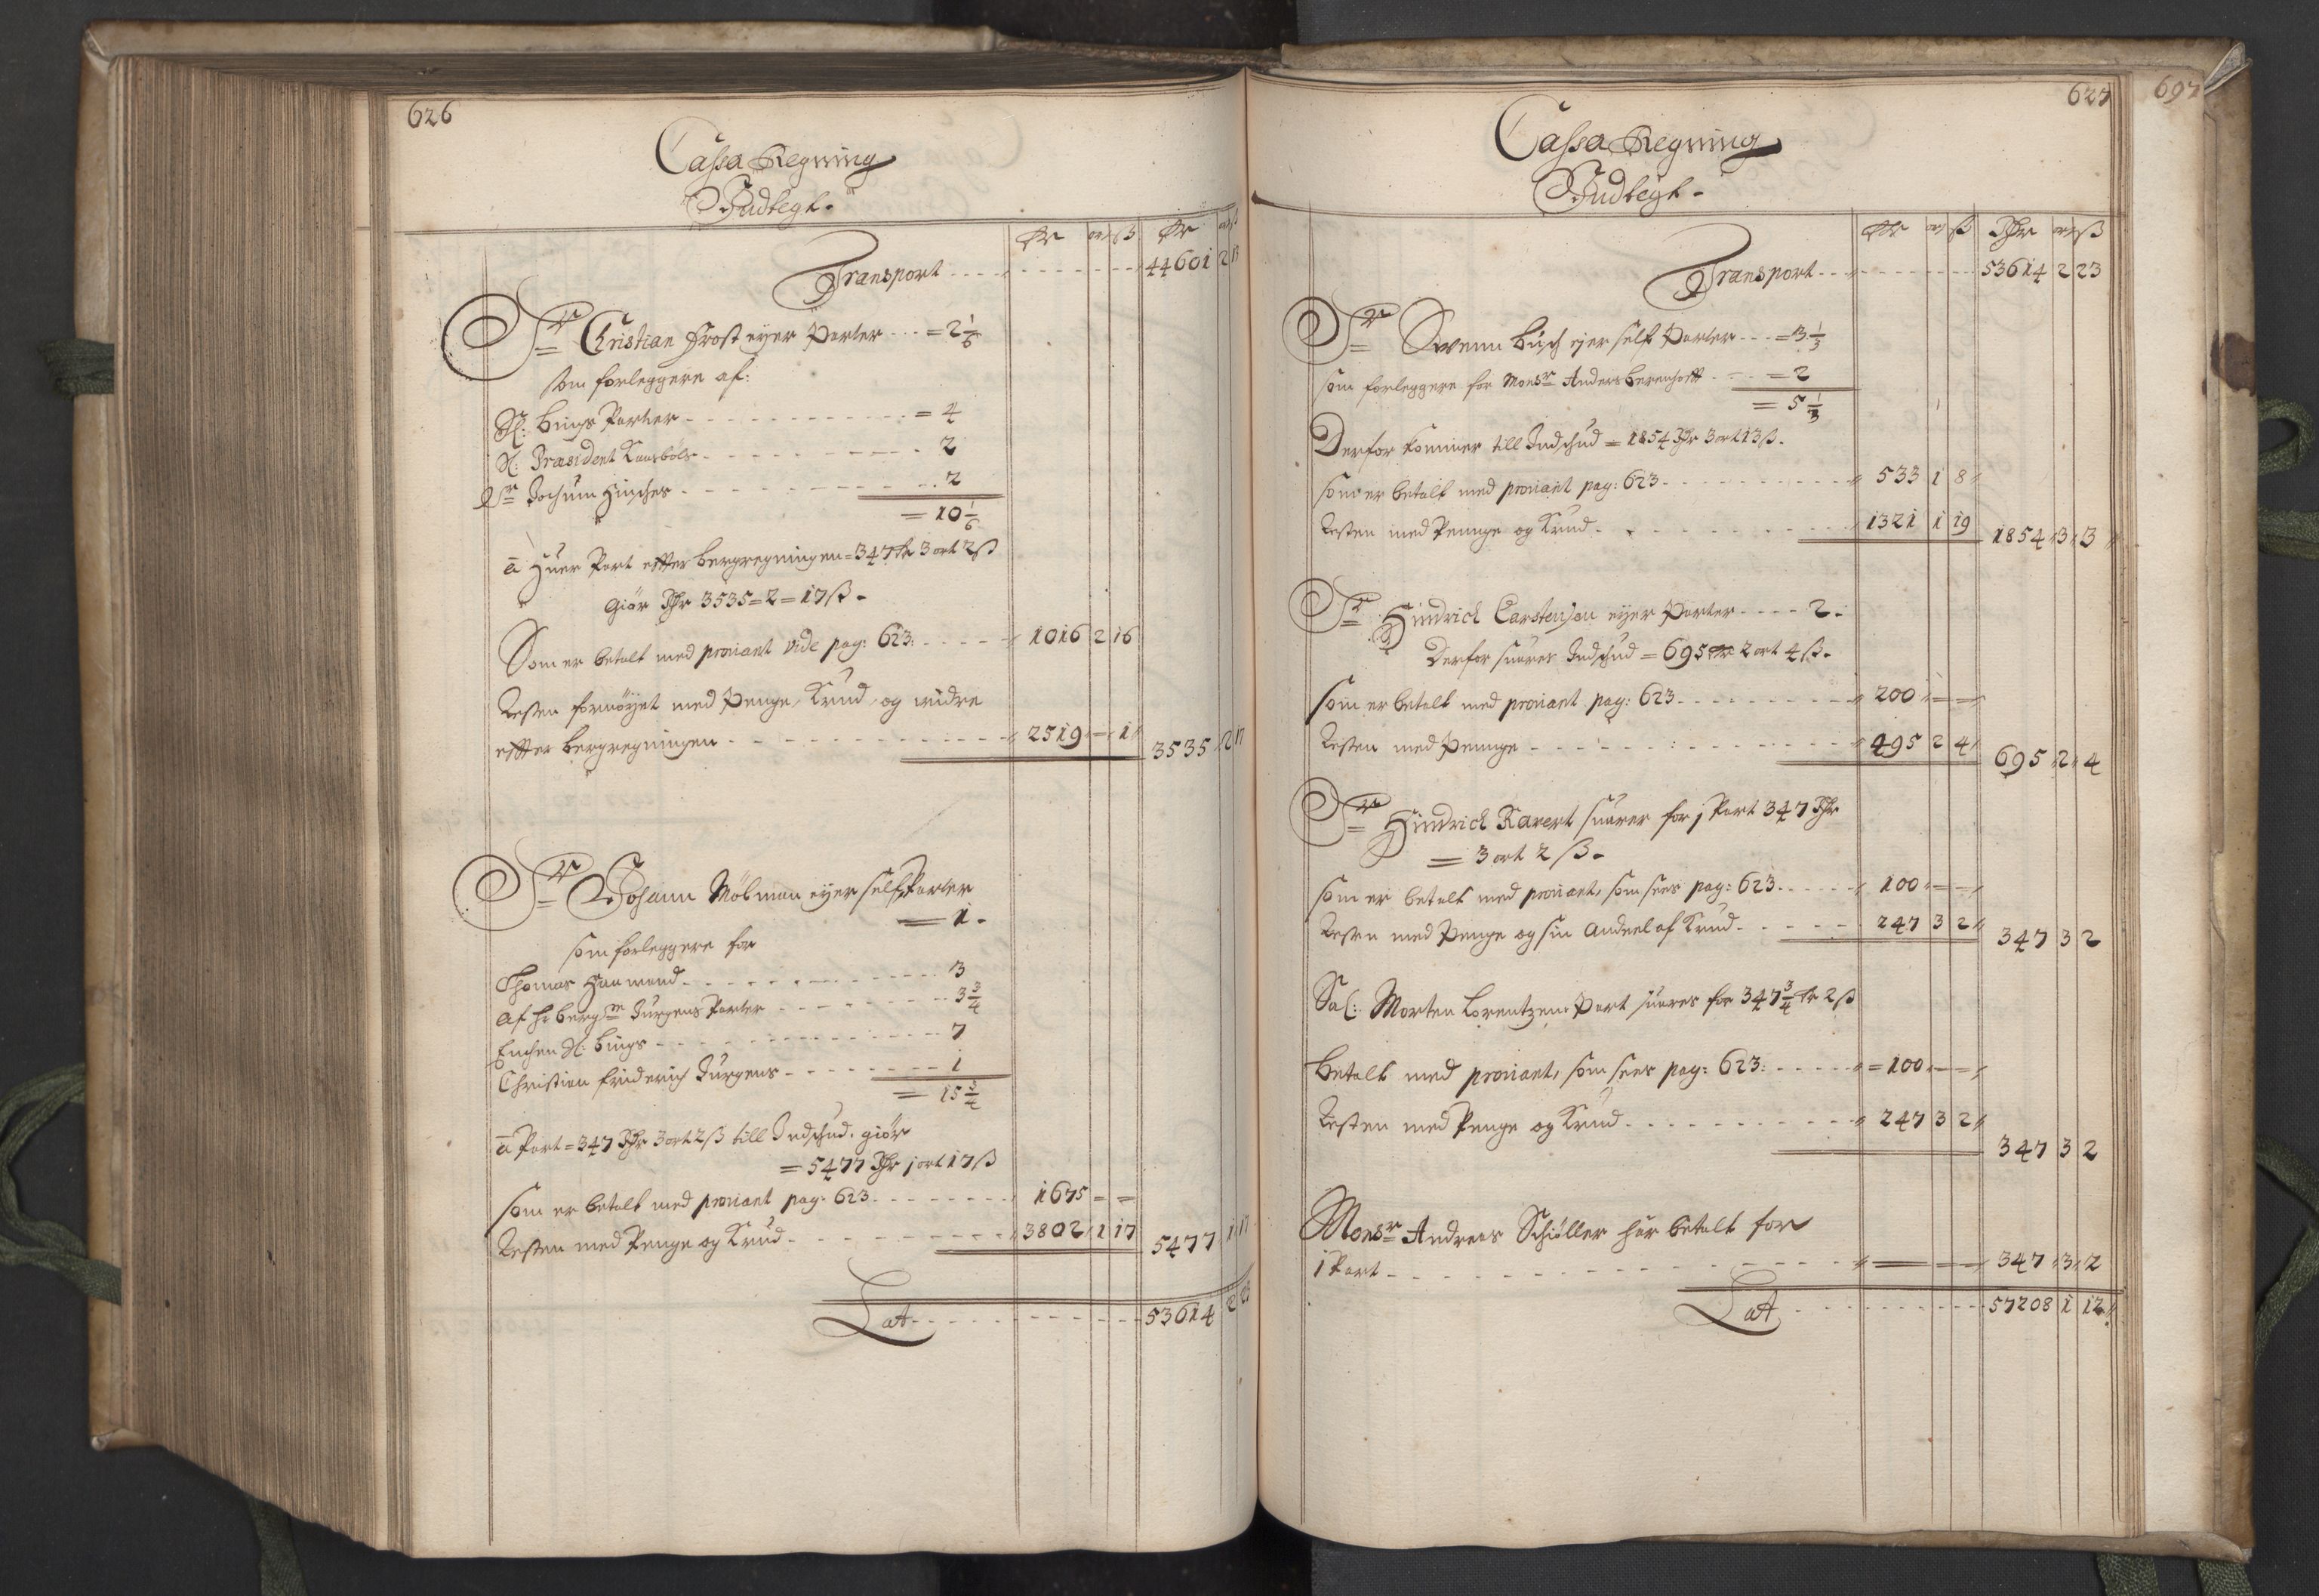 626
Cassa Regning
Indtegt.
Rdr ort ß Rdr ort ß
Transport 44601 2 13
Sr Christian Frost eyer Parter = 2 1/6
som forleggere af:
Sl: Bings Parter = 4
Sl: Præsident Kaasböls 2
Sr Jochum Hinsches 2
= 10 1/6
à Huer Part effter bergregningen = 347 Rdr 3 ort 2 ß
Giör Rdr 3535 = 2 = 17 ß.
Som er betalt med proviant vide pag: 623: 1016 2 16
Resten fornöyet med Penge, Krud, og widre
effter bergregningen 2519 – 1 3535 2 17
Sr Johann Mölman eyer self Parter
= 1.
som forleggere for
Thomas Hammond 3
af Hr Bergm Jurgens Parter 3 3/4
Enchen Sl: Bings 7
Christian friderich Jurgens 1
= 15 3/4
à Part = 347 Rdr 3 ort 2 ß till Indschud, giör
= 5477 Rdr 1 ort 17 ß
som er betalt med proviant pag: 623 1675 = =
Resten med Penge og Krud 3802 1 17 5477 1 17
Lat 53614 2 23
627
697
Cassa Regning
Indtegt.
Rdr ort ß Rdr ort ß
Transport 53614 2 23
Sr Swenn Busch ejer self Parter = 3 1/3
som forleggere for Monsr Anders Berenhoff = 2
= 5 1/3
Derfor kommer till Indschud = 1854 Rdr 3 ort 13 ß.
som er betalt med proviant pag: 623 533 1 8
Resten med Penge og Krud 1321 1 19 1854 3 3
Sr Hindrich Carstensen eyer Parter 2.
Derfor suares Indschud = 695 Rdr 2 ort 4 ß.
som er betalt med proviant pag: 623 200 – –
Resten med Penge 495 2 4 695 2 4
Sr Hindrich Ravert suarer for 1 Part 347 Rdr
= 3 ort 2 ß.
som er betalt med proviant, som sees pag: 623 100 – –
Resten med Penge og sin Andeel af Krud 247 3 2 347 3 2
Sal: Morten Lorentzens Part suares for 347 3/4 Rdr 2 ß
Betalt med proviant, som sees pag: 623: = 100 – –
Resten med Penge og Krud 247 3 2
347 3 2
Monsr Andreas Schiöller har betalt for
1 Part = – – 347 3 2
Lat 57208 1 12